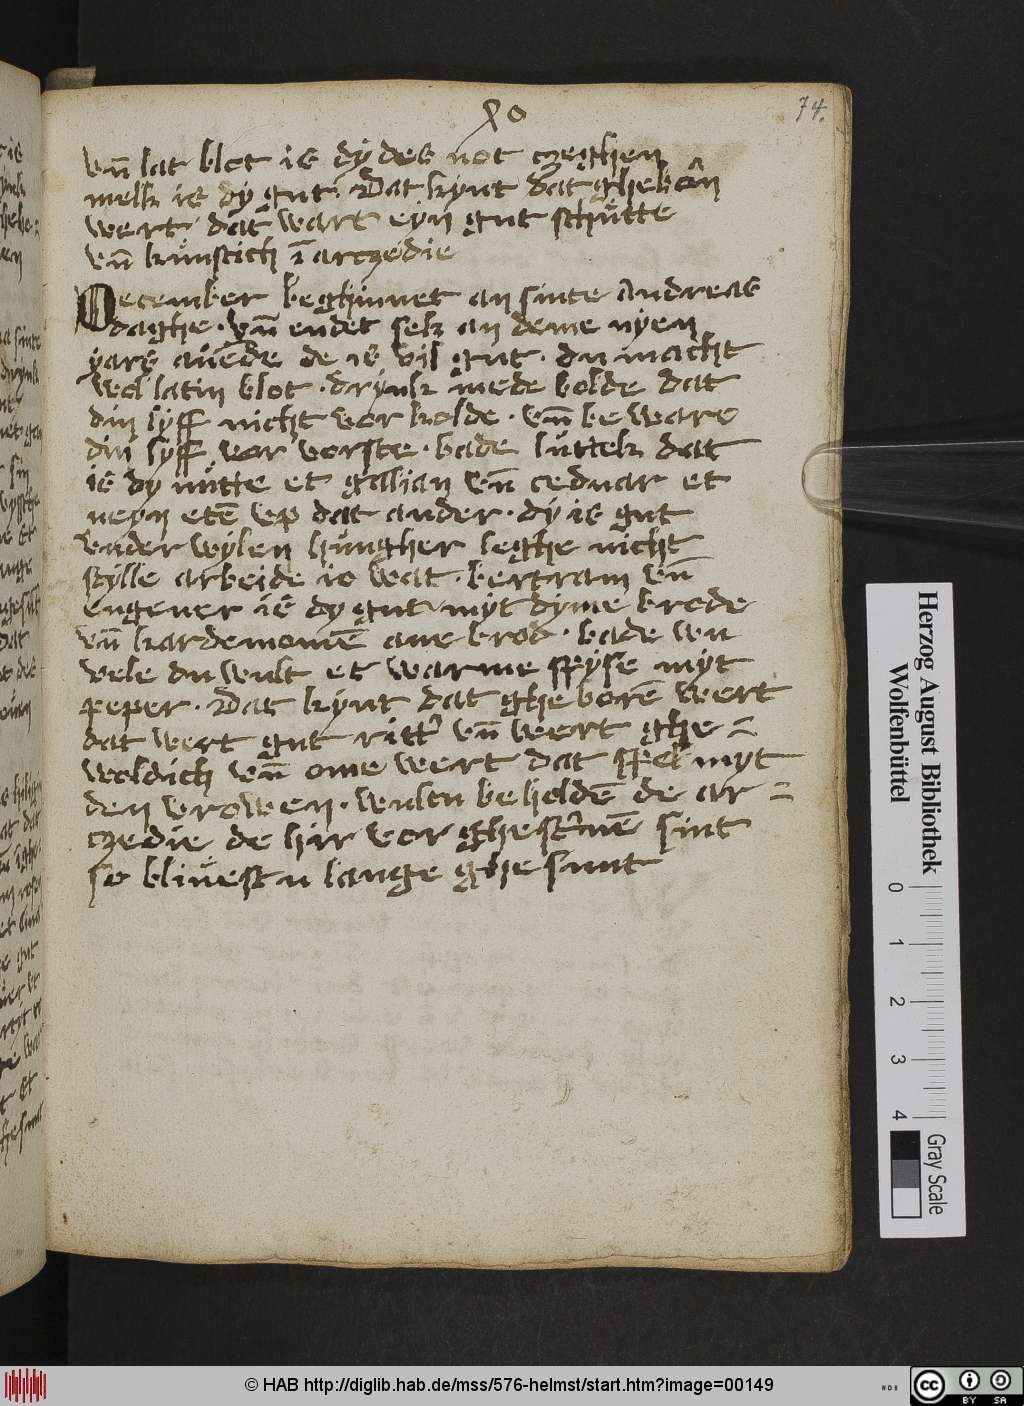 74.
vn̄ lat blot is dy des not czeghen
melk is dy gut. Dat kynt dat ghebon
wert dat wart eyn gut schůtte
vn̄ kůnstich ī arczedie
December beghinnet an sinte Andreas
daghe. vn̄ endet sek an deme nyen
yars auende de is vil gut. du macht
wol latin blot. drynk mede bolde dat
din lyff nicht vor kolde. vn̄ beware
din lyff vor vorste. bade lůttek dat
is dy nůtte et gallian vn̄ ceduar et
neyn etē vp dat ander. dy is gut
vnder wylen hůngher leghe nicht
stylle arbeide io wat. bertram vn̄
engeuer is dy gut myt dyme brode
vn̄ kardemomē ane brod. bade wu
vele du wult et warme spyse myt
peper. Dat kynt dat ghe borē wert
dat wert gut ritt' vn̄ wert ghe=
woldich vn̄ ome wert dat spel myt
den vrowen. wultu beholdē de ar=
czedie de hir vor ghescr'uē sint
so bliuest u lange ghe sunt
Herzog August Bibliothek
Wolfenbüttel
0 1 2 3 4
Gray Scale
© HAB http://diglib.hab.de/mss/576-helmst/start.htm?image=00149
WDB
cc BY SA